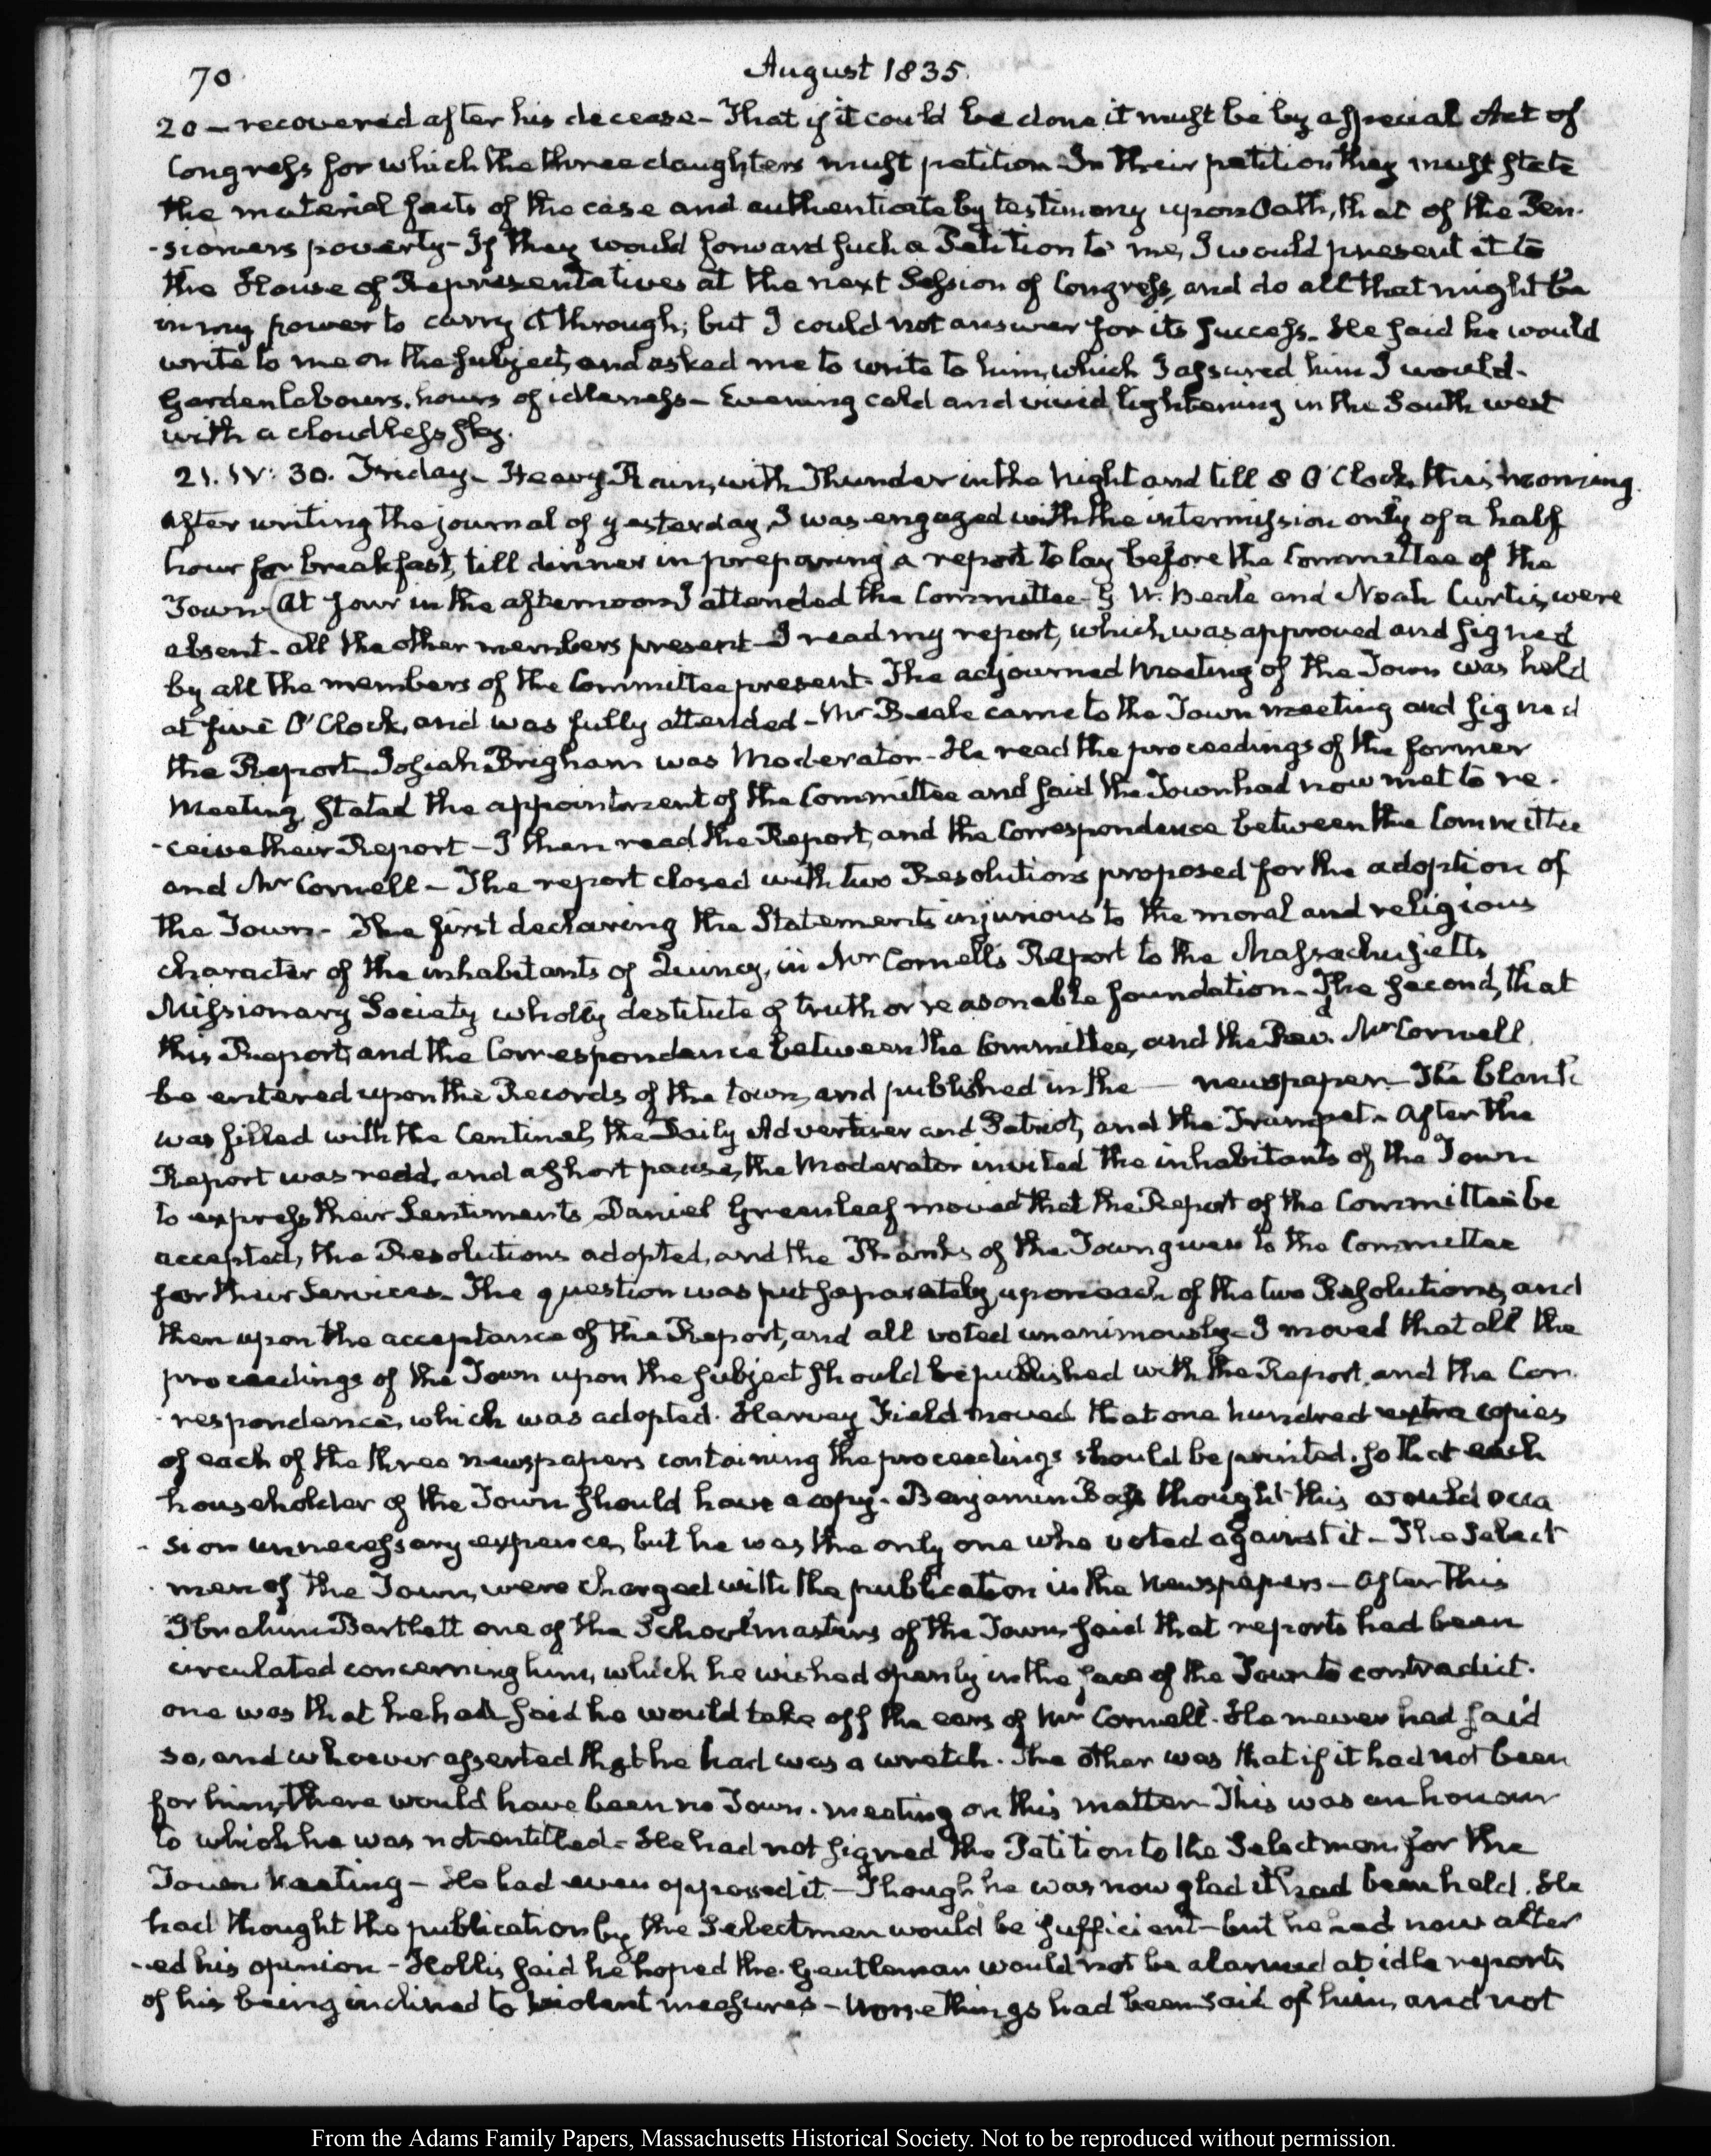 70
August 1835.
20 — recovered after his decease - That if it could be done it must be by a special Act of
Congress for which the three daughters must petition - In their petition they must state
the material facts of the case and authenticate by testimony upon Oath, that of the Pen-
-sioners poverty - If they would forward such a Petition to me, I would present it to
the House of Representatives at the next Session of Congress, and do all that might be
in my power to carry it through; but I could not answer for its success. He said he would
write to me on the subject, and asked me to write to him, which I assured him I would.
Garden labours. hours of idleness - Evening cold and vivid lightening in the South west
with a cloudless sky.
21. IV: 30. Friday - Heavy Rain, with Thunder in the Night and till 8 O'Clock this morning.
After writing the journal of yesterday, I was engaged with the intermission only of a half
hour for breakfast, till dinner in preparing a report to lay before the Committee of the
Town. At four in the afternoon I attended the Committee - G W. Beale and Noah Curtis, were
absent - all the other members present - I read my report, which was approved and signed
by all the members of the Committee present. The adjourned Meeting of the Town was held
at five O'Clock, and was fully attended - Mr Beale came to the Town meeting and signed
the Report - Josiah Brigham was Moderator - He read the proceedings of the former
Meeting, stated the appointment of the Committee and said the Town had now met to re-
-ceive their Report - I then read the Report, and the Correspondence between the Committee
and Mr Cornell - The report closed with two Resolutions proposed for the adoption of
the Town - The first declaring the Statements injurious to the moral and religious
character of the inhabitants of Quincy, in Mr Cornell's Report to the Massachusetts
Missionary Society wholly destitute of truth or reasonable foundation - The second, that
this Report, and the Correspondence between the Committee, and the Revd. Mr Cornell,
be entered upon the Records of the town, and published in the — newspaper - The blank
was filled with the Centinel, the Daily Advertiser and Patriot, and the Trumpet - After the
Report was read, and a short pause, the Moderator invited the inhabitants of the Town
to express their Sentiments. Daniel Greenleaf moved that the Report of the Committee be
accepted, the Resolutions adopted, and the Thanks of the Town given to the Committee
for their Services - The question was put separately, upon each of the two Resolutions, and
then upon the acceptance of the Report, and all voted unanimously - I moved that all the
proceedings of the Town upon the subject should be published with the Report, and the Cor-
-respondence, which was adopted. Harvey Field moved that one hundred extra copies
of each of the three newspapers containing the proceedings should be printed, so that each
householder of the Town should have a copy. Benjamin Bass thought this would occa
-sion unnecessary expence, but he was the only one who voted against it - The Select
-men of the Town, were charged with the publication in the Newspapers - After this
Ibrahim Bartlett one of the Schoolmasters of the Town, said that reports had been
circulated concerning him, which he wished openly in the face of the Town to contradict.
one was that he had said he would take off the ears of Mr Cornell. He never had said
so, and whoever asserted that he had was a wretch. The other was that if it had not been
for him, there would have been no Town-meeting on this matter - This was an honour
to which he was not entitled - He had not signed the Petition to the Selectmen for the
Town Meeting - He had even opposed it - Though he was now glad it had been held. He
had thought the publication by the Selectmen would be sufficient - but he had now alter
-ed his opinion - Hollis said he hoped the Gentleman would not be alarmed at idle reports
of his being inclined to violent measures - worse things had been said of him, and not
From the Adams Family Papers, Massachusetts Historical Society. Not to be reproduced without permission.